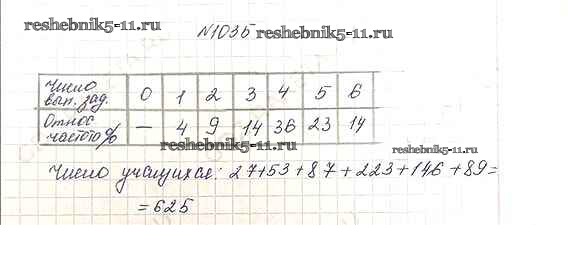 reshebnik5-11.ru
№1035 reshebnik5-11.ru
Число вып. зад. 0 1 2 3 4 5 6
Относ частота % — 4 9 14 36 23 14
reshebnik5-11.ru
Число учащихся: 27+53+87+223+146+89=
=625
reshebnik5-11.ru